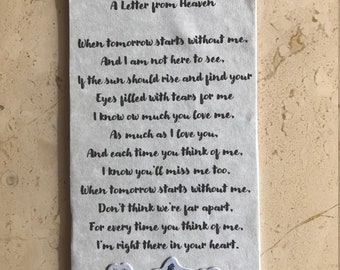 A Letter from Heaven
When tomorrow starts without me,
And I am not here to see,
If the sun should rise and find your
Eyes filled with tears for me
I know ow much you love me,
As much as I love you,
And each time you think of me,
I know you'll miss me too.
When tomorrow starts without me,
Don't think we're far apart,
For every time you think of me,
I'm right there in your heart.